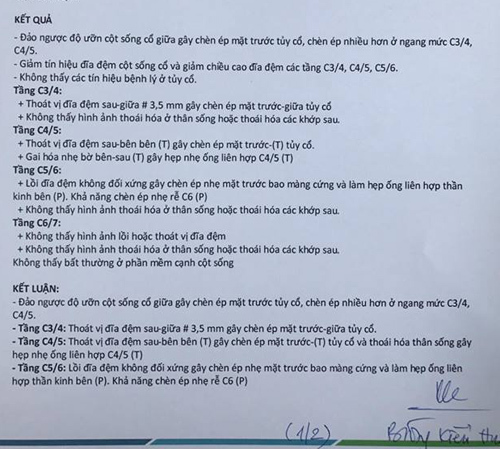 KẾT QUẢ
- Đảo ngược độ ưỡn cột sống cổ giữa gây chèn ép mặt trước tủy cổ, chèn ép nhiều hơn ở ngang mức C3/4,
C4/5.
- Giảm tín hiệu đĩa đệm cột sống cổ và giảm chiều cao đĩa đệm các tầng C3/4, C4/5, C5/6.
- Không thấy các tín hiệu bệnh lý ở tủy cổ.
Tầng C3/4:
+ Thoát vị đĩa đệm sau-giữa # 3,5 mm gây chèn ép mặt trước-giữa tủy cổ
+ Không thấy hình ảnh thoái hóa ở thân sống hoặc thoái hóa các khớp sau.
Tầng C4/5:
+ Thoát vị đĩa đệm sau-bên bên (T) gây chèn ép mặt trước-(T) tủy cổ.
+ Gai hóa nhẹ bờ bên-sau (T) gây hẹp nhẹ ống liên hợp C4/5 (T)
Tầng C5/6:
+ Lồi đĩa đệm không đối xứng gây chèn ép nhẹ mặt trước bao màng cứng và làm hẹp ống liên hợp thần
kinh bên (P). Khả năng chèn ép nhẹ rễ C6 (P)
+ Không thấy hình ảnh thoái hóa ở thân sống hoặc thoái hóa các khớp sau.
Tầng C6/7:
+ Không thấy hình ảnh lồi hoặc thoát vị đĩa đệm
+ Không thấy hình ảnh thoái hóa ở thân sống hoặc thoái hóa các khớp sau.
Không thấy bất thường ở phần mềm cạnh cột sống
KẾT LUẬN:
- Đảo ngược độ ưỡn cột sống cổ giữa gây chèn ép mặt trước tủy cổ, chèn ép nhiều hơn ở ngang mức C3/4,
C4/5.
- Tầng C3/4: Thoát vị đĩa đệm sau-giữa # 3,5 mm gây chèn ép mặt trước-giữa tủy cổ.
- Tầng C4/5: Thoát vị đĩa đệm sau-bên bên (T) gây chèn ép mặt trước-(T) tủy cổ và thoái hóa thân sống gây
hẹp nhẹ ống liên hợp C4/5 (T)
- Tầng C5/6: Lồi đĩa đệm không đối xứng gây chèn ép nhẹ mặt trước bao màng cứng và làm hẹp ống liên
hợp thần kinh bên (P). Khả năng chèn ép nhẹ rễ C6 (P)
(1/2)